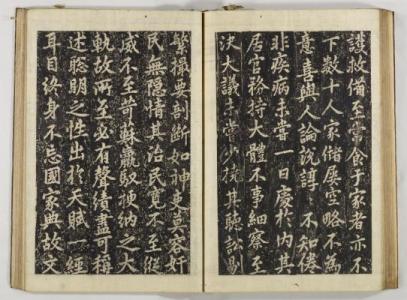 護救備至嘗食于家者亦不
下數十人家儲屢空略不為
意喜與人論說諄諄不知倦
非疾病未嘗一日處於內其
居官務持大體不事細察至
決大議未嘗少撓其聽訟易
繁撮要剖斷如神吏莫容奸
民無隱情其治民寬不至縱
威不至苛蘇羸馭梗納之大
軌故所至必有聲績盡可稱
述聦明之性出於天賦一經
耳目終身不忘國家典故文